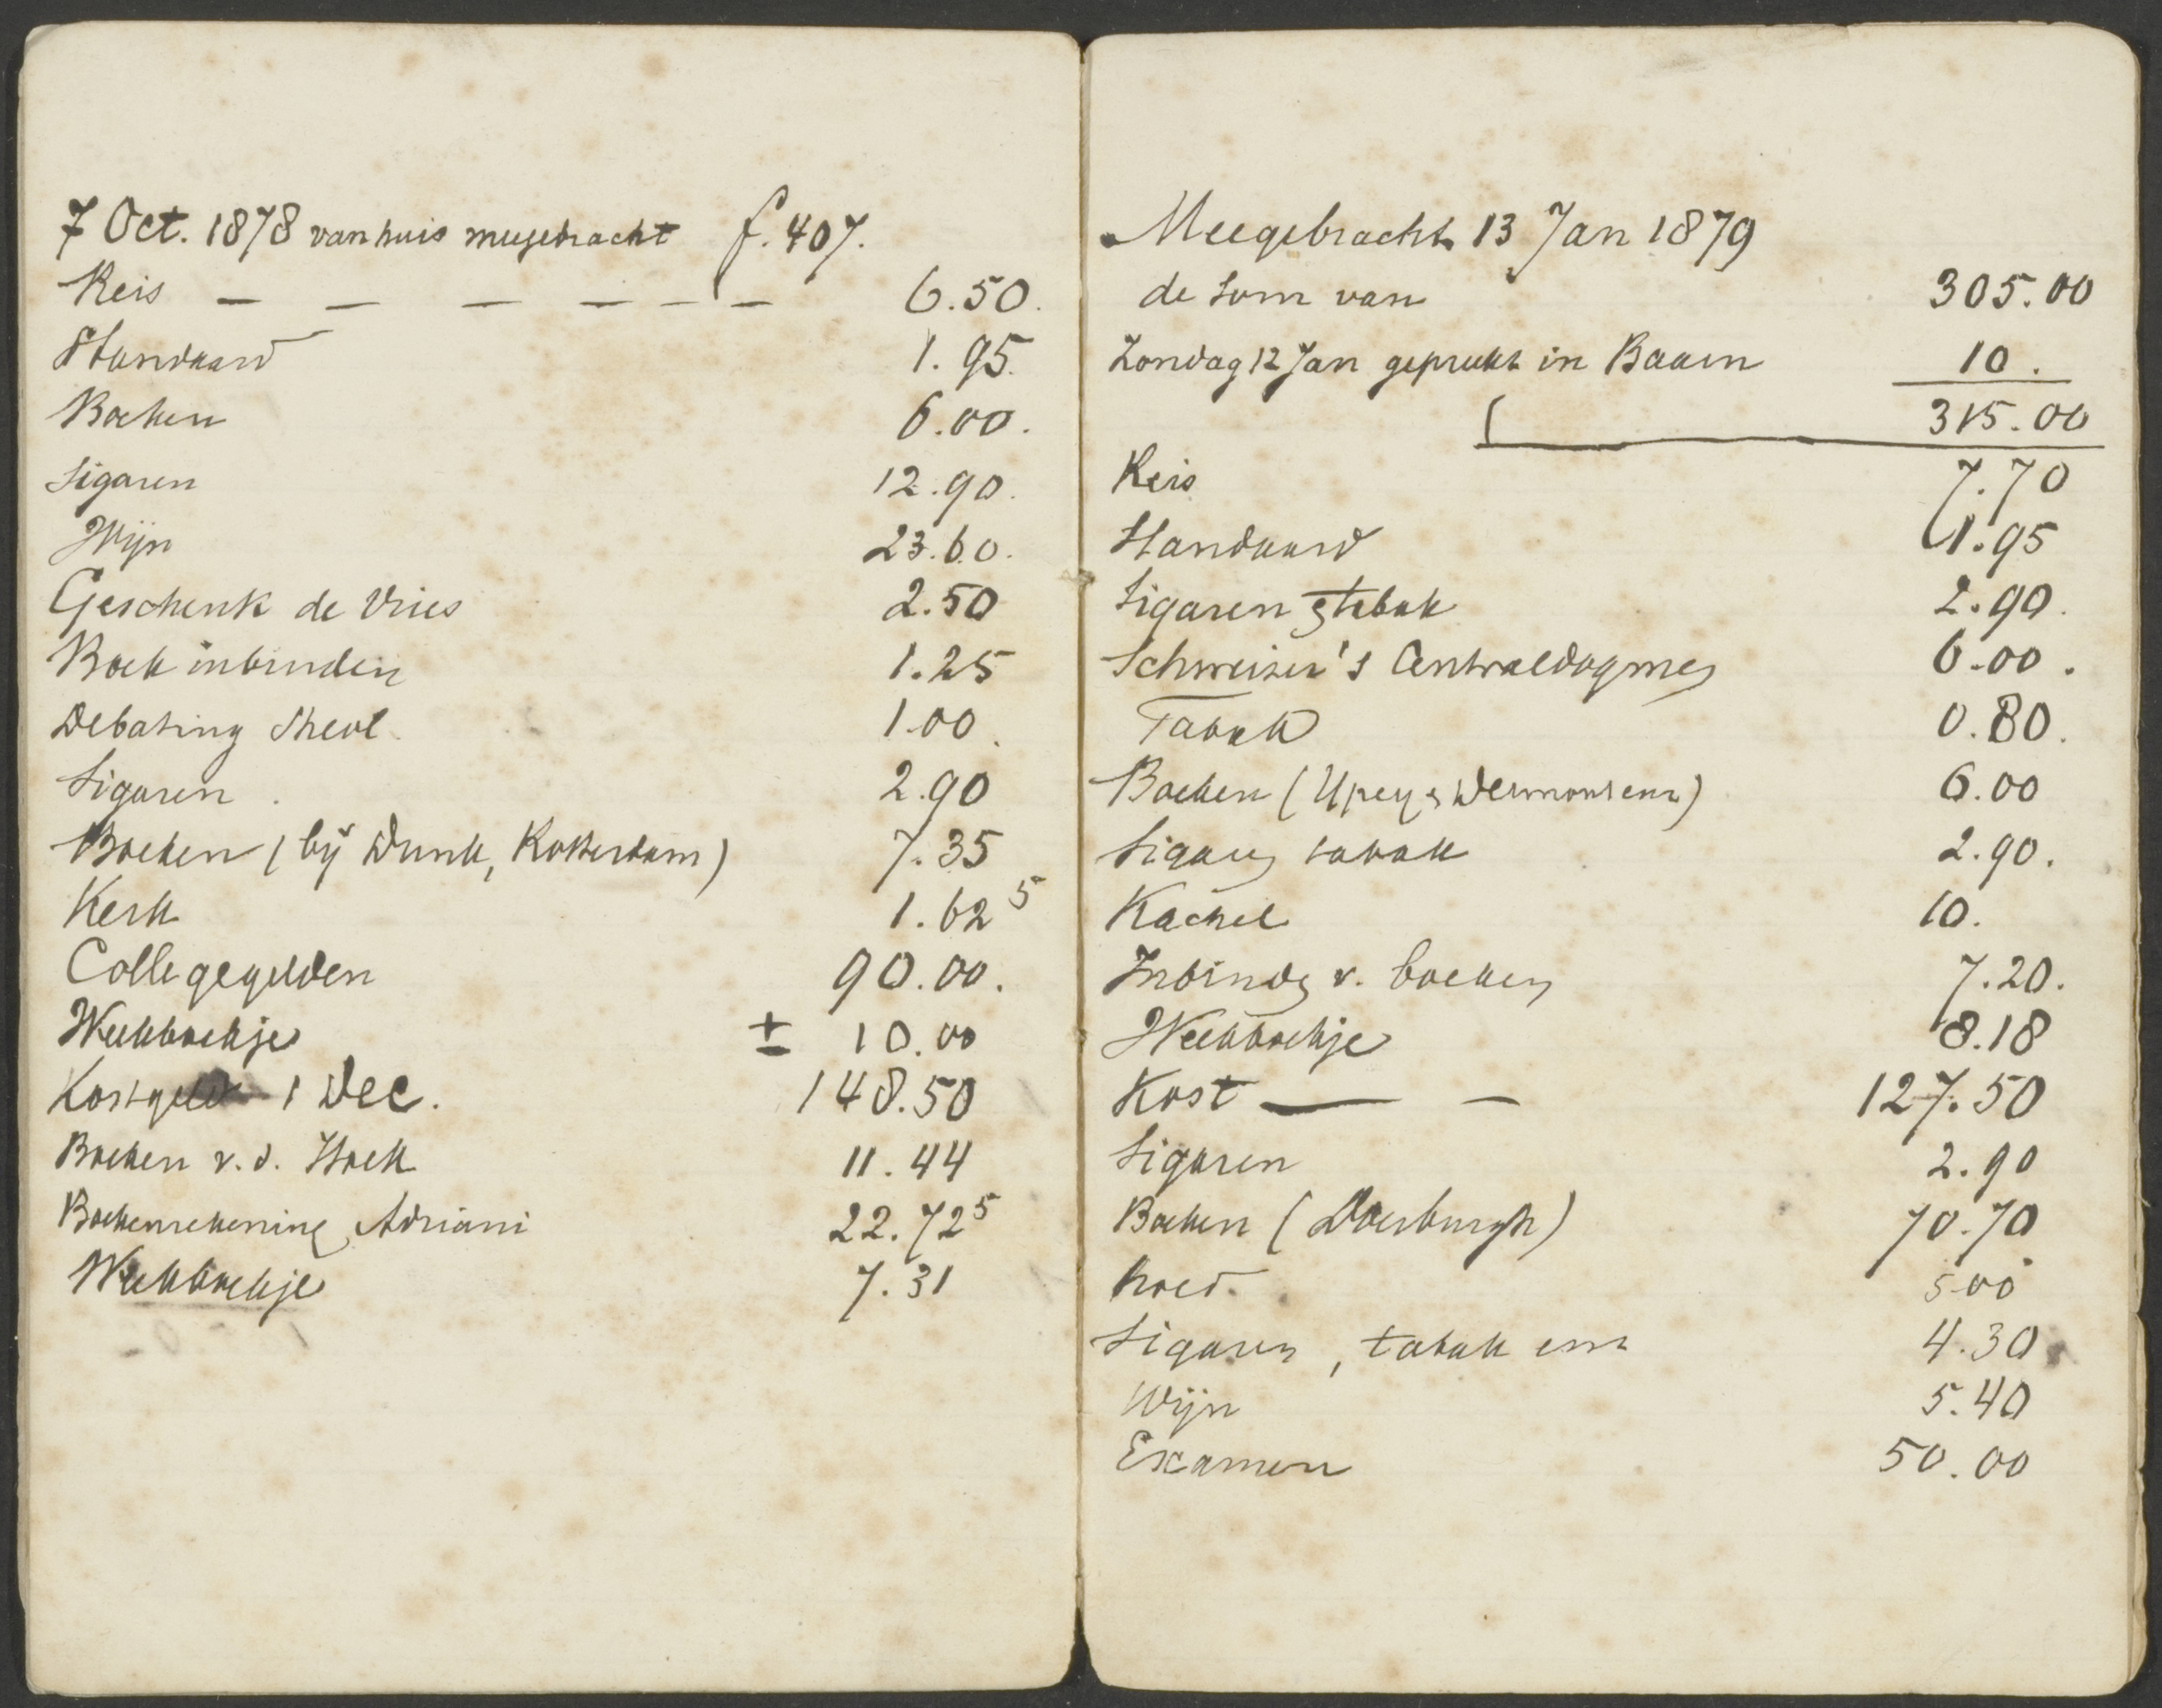 7 Oct. 1878 van huis meegebracht f. 407.
Reis — — — — — — 6.50.
Standaard 1.95.
Boeken 6.00.
Sigaren 12.90.
Wijn 23.60.
Geschenk de Vries 2.50
Boek inbinden 1.25
Debating Theol. 1.00.
Sigaren. 2.90
Boeken (bij Dunk, Rotterdam) 7.35
Kerk 1.62⁵
Collegegelden 90.00.
Weekboekje ± 10.00
Kostgeld 1 Dec. 148.50
Boeken v.d. Hoek 11.44
Boekenrekening Adriani 22.72⁵
Weekboekje 7.31
Meegebracht 13 Jan 1879
de som van 305.00
Zondag 12 Jan gepreekt in Baarn 10.
315.00
Reis 7.70
Standaard 1.95
Sigaren & tabak 2.90.
Schweizer's Centraldogmen 6.00.
Tabak 0.80.
Boeken (Upey & Dermout enz) 6.00
Sigaren tabak 2.90.
Kachel 10.
Inbinden v. boeken 7.20.
Weekboekje 8.18
Kost — — 127.50
Sigaren 2.90
Boeken (Doesburgh) 70.70
hoed. 5.00
Sigaren, tabak enz 4.30
Wijn 5.40
Examen 50.00